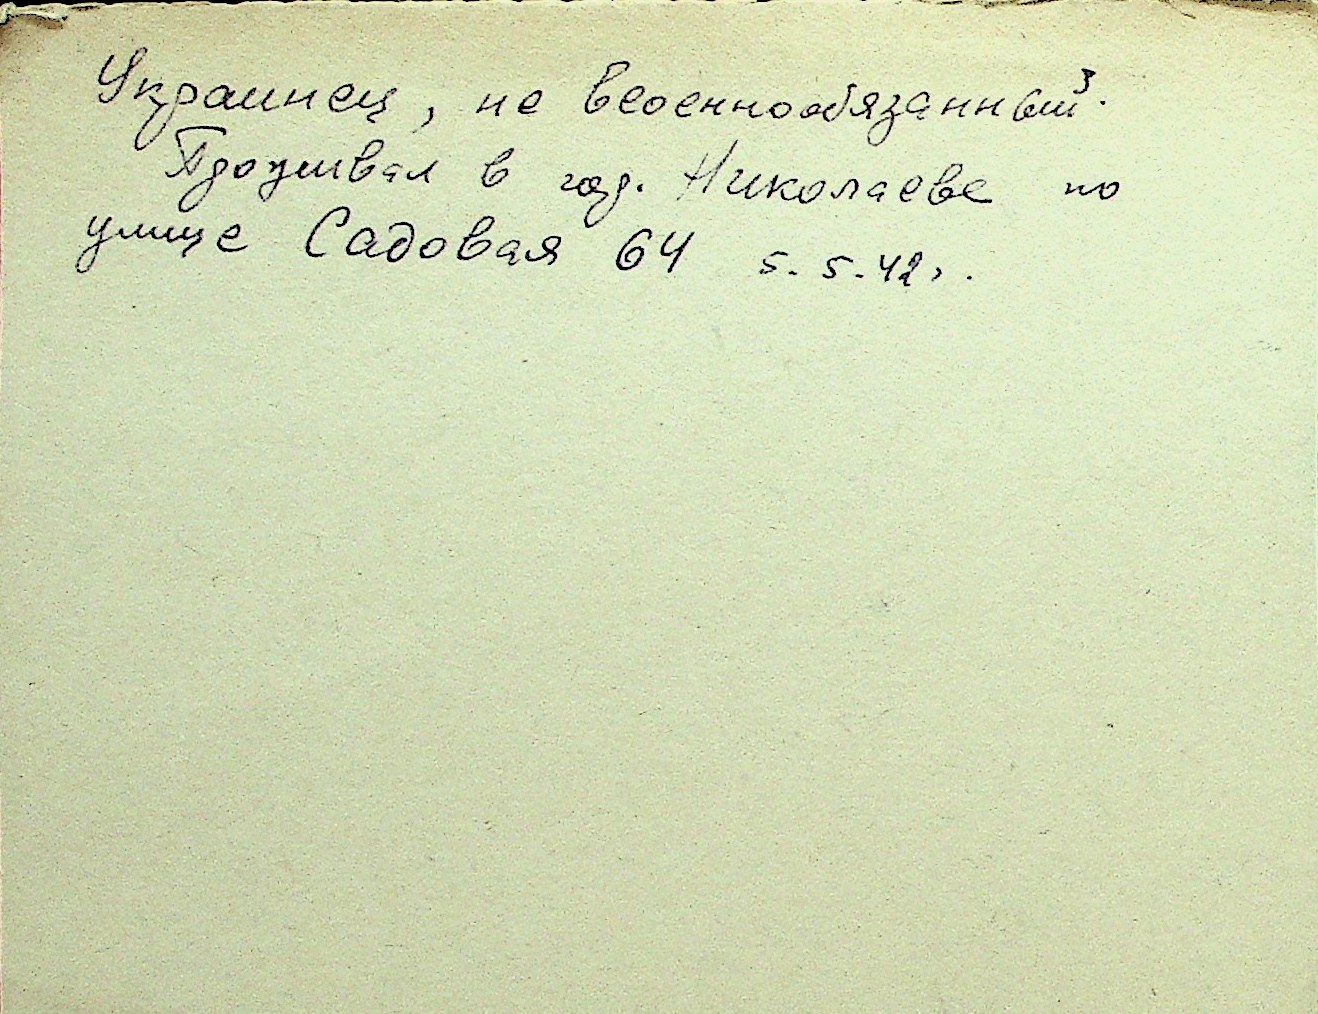 Украинец, не веоеннообязанный.
Проживал в гор. Николаеве по
улице Садовая 64 5.5.42г.